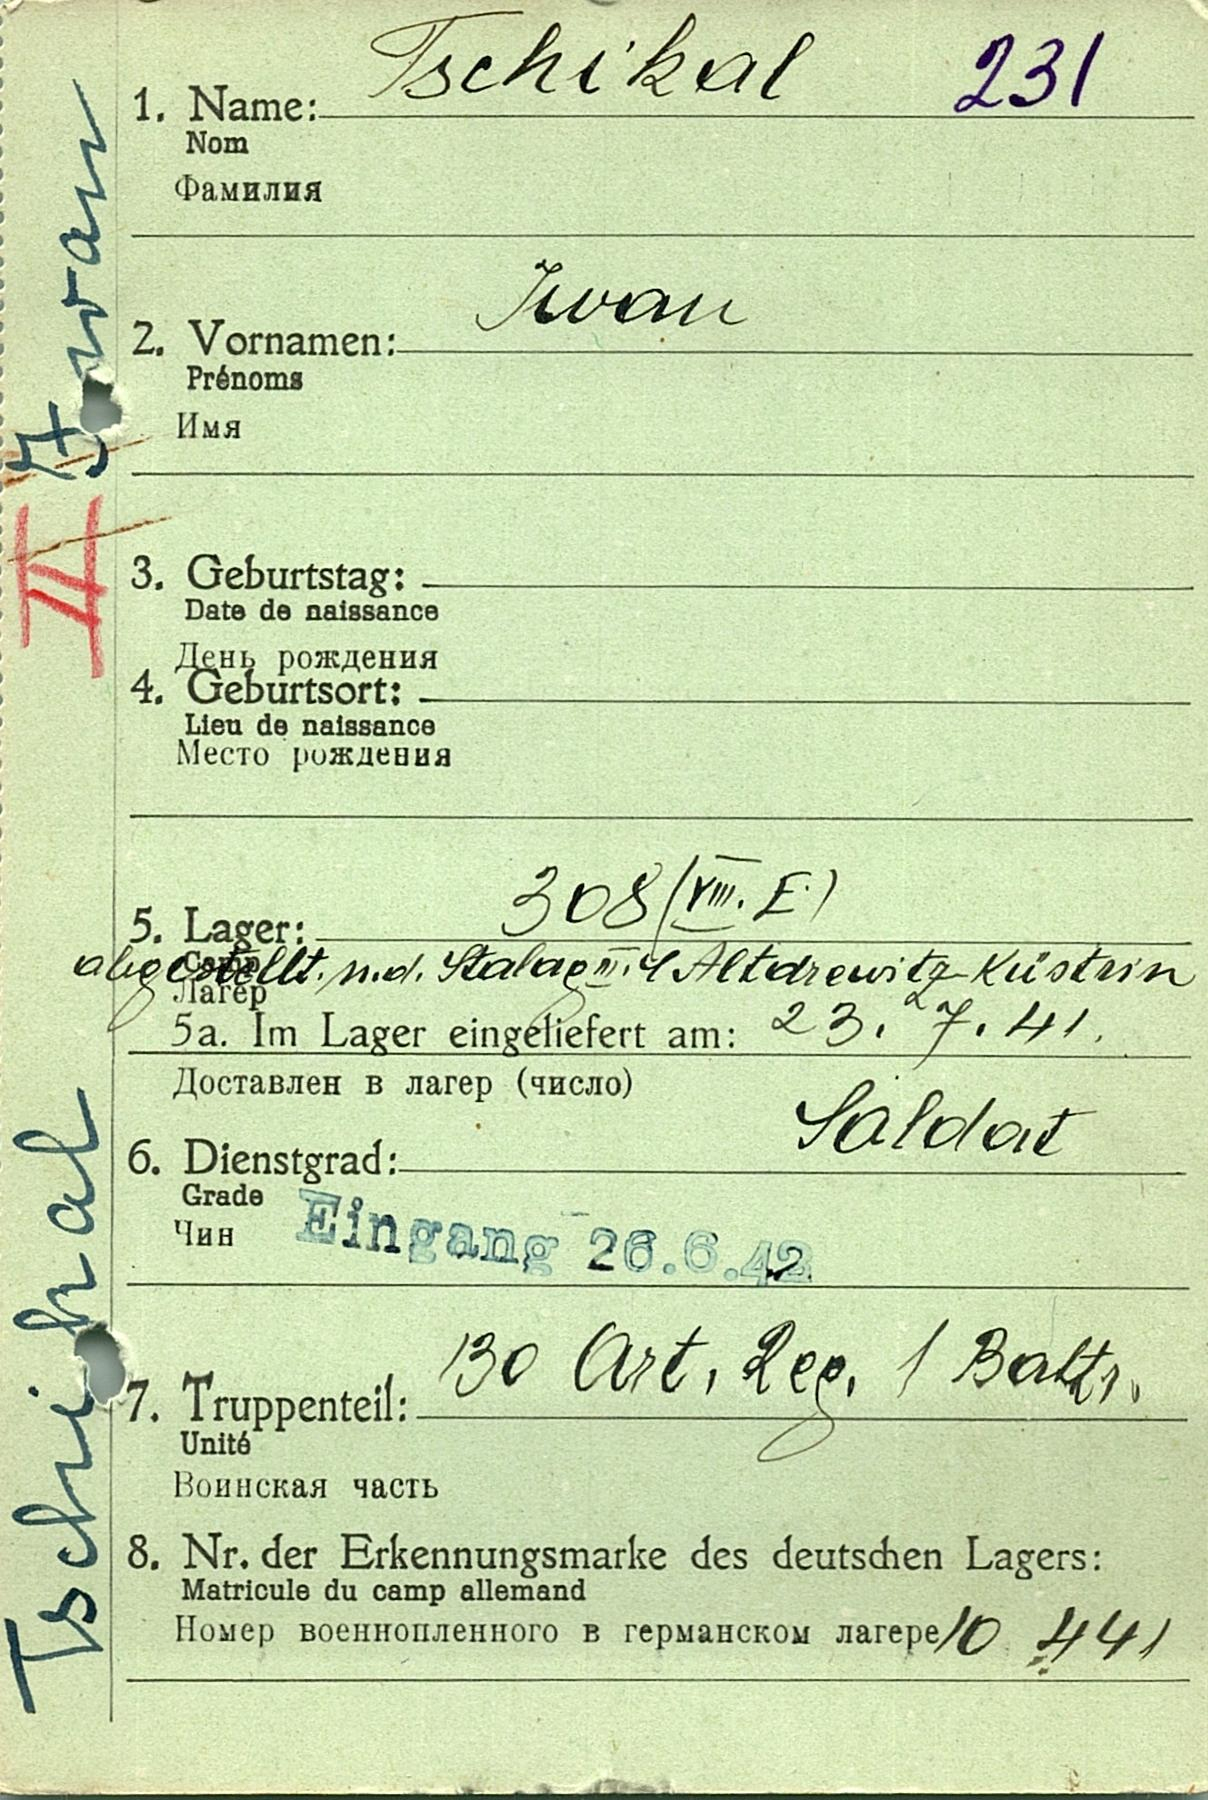 Tschikal 231
1. Name:
Nom
Фамилия
Iwan
2. Vornamen:
Prénoms
Имя
3. Geburtstag:
Date de naissance
День рождения
4. Geburtsort:
Lieu de naissance
Место рождения
308 (VIII. E)
5. Lager:
Camp
abgestellt. n.d. Stalag III. C Altdrewitz Küstrin
Лагер
5a. Im Lager eingeliefert am: 23. 7. 41.
Доставлен в лагер (число)
Saldat
6. Dienstgrad:
Grade
Чин
Eingang 26.6.42
130 Art. Reg. 1 Battr.
7. Truppenteil:
Unité
Воинская часть
8. Nr. der Erkennungsmarke des deutschen Lagers:
Matricule du camp allemand
Номер военнопленного в германском лагере 10 441
Tschikal
II
Iwan